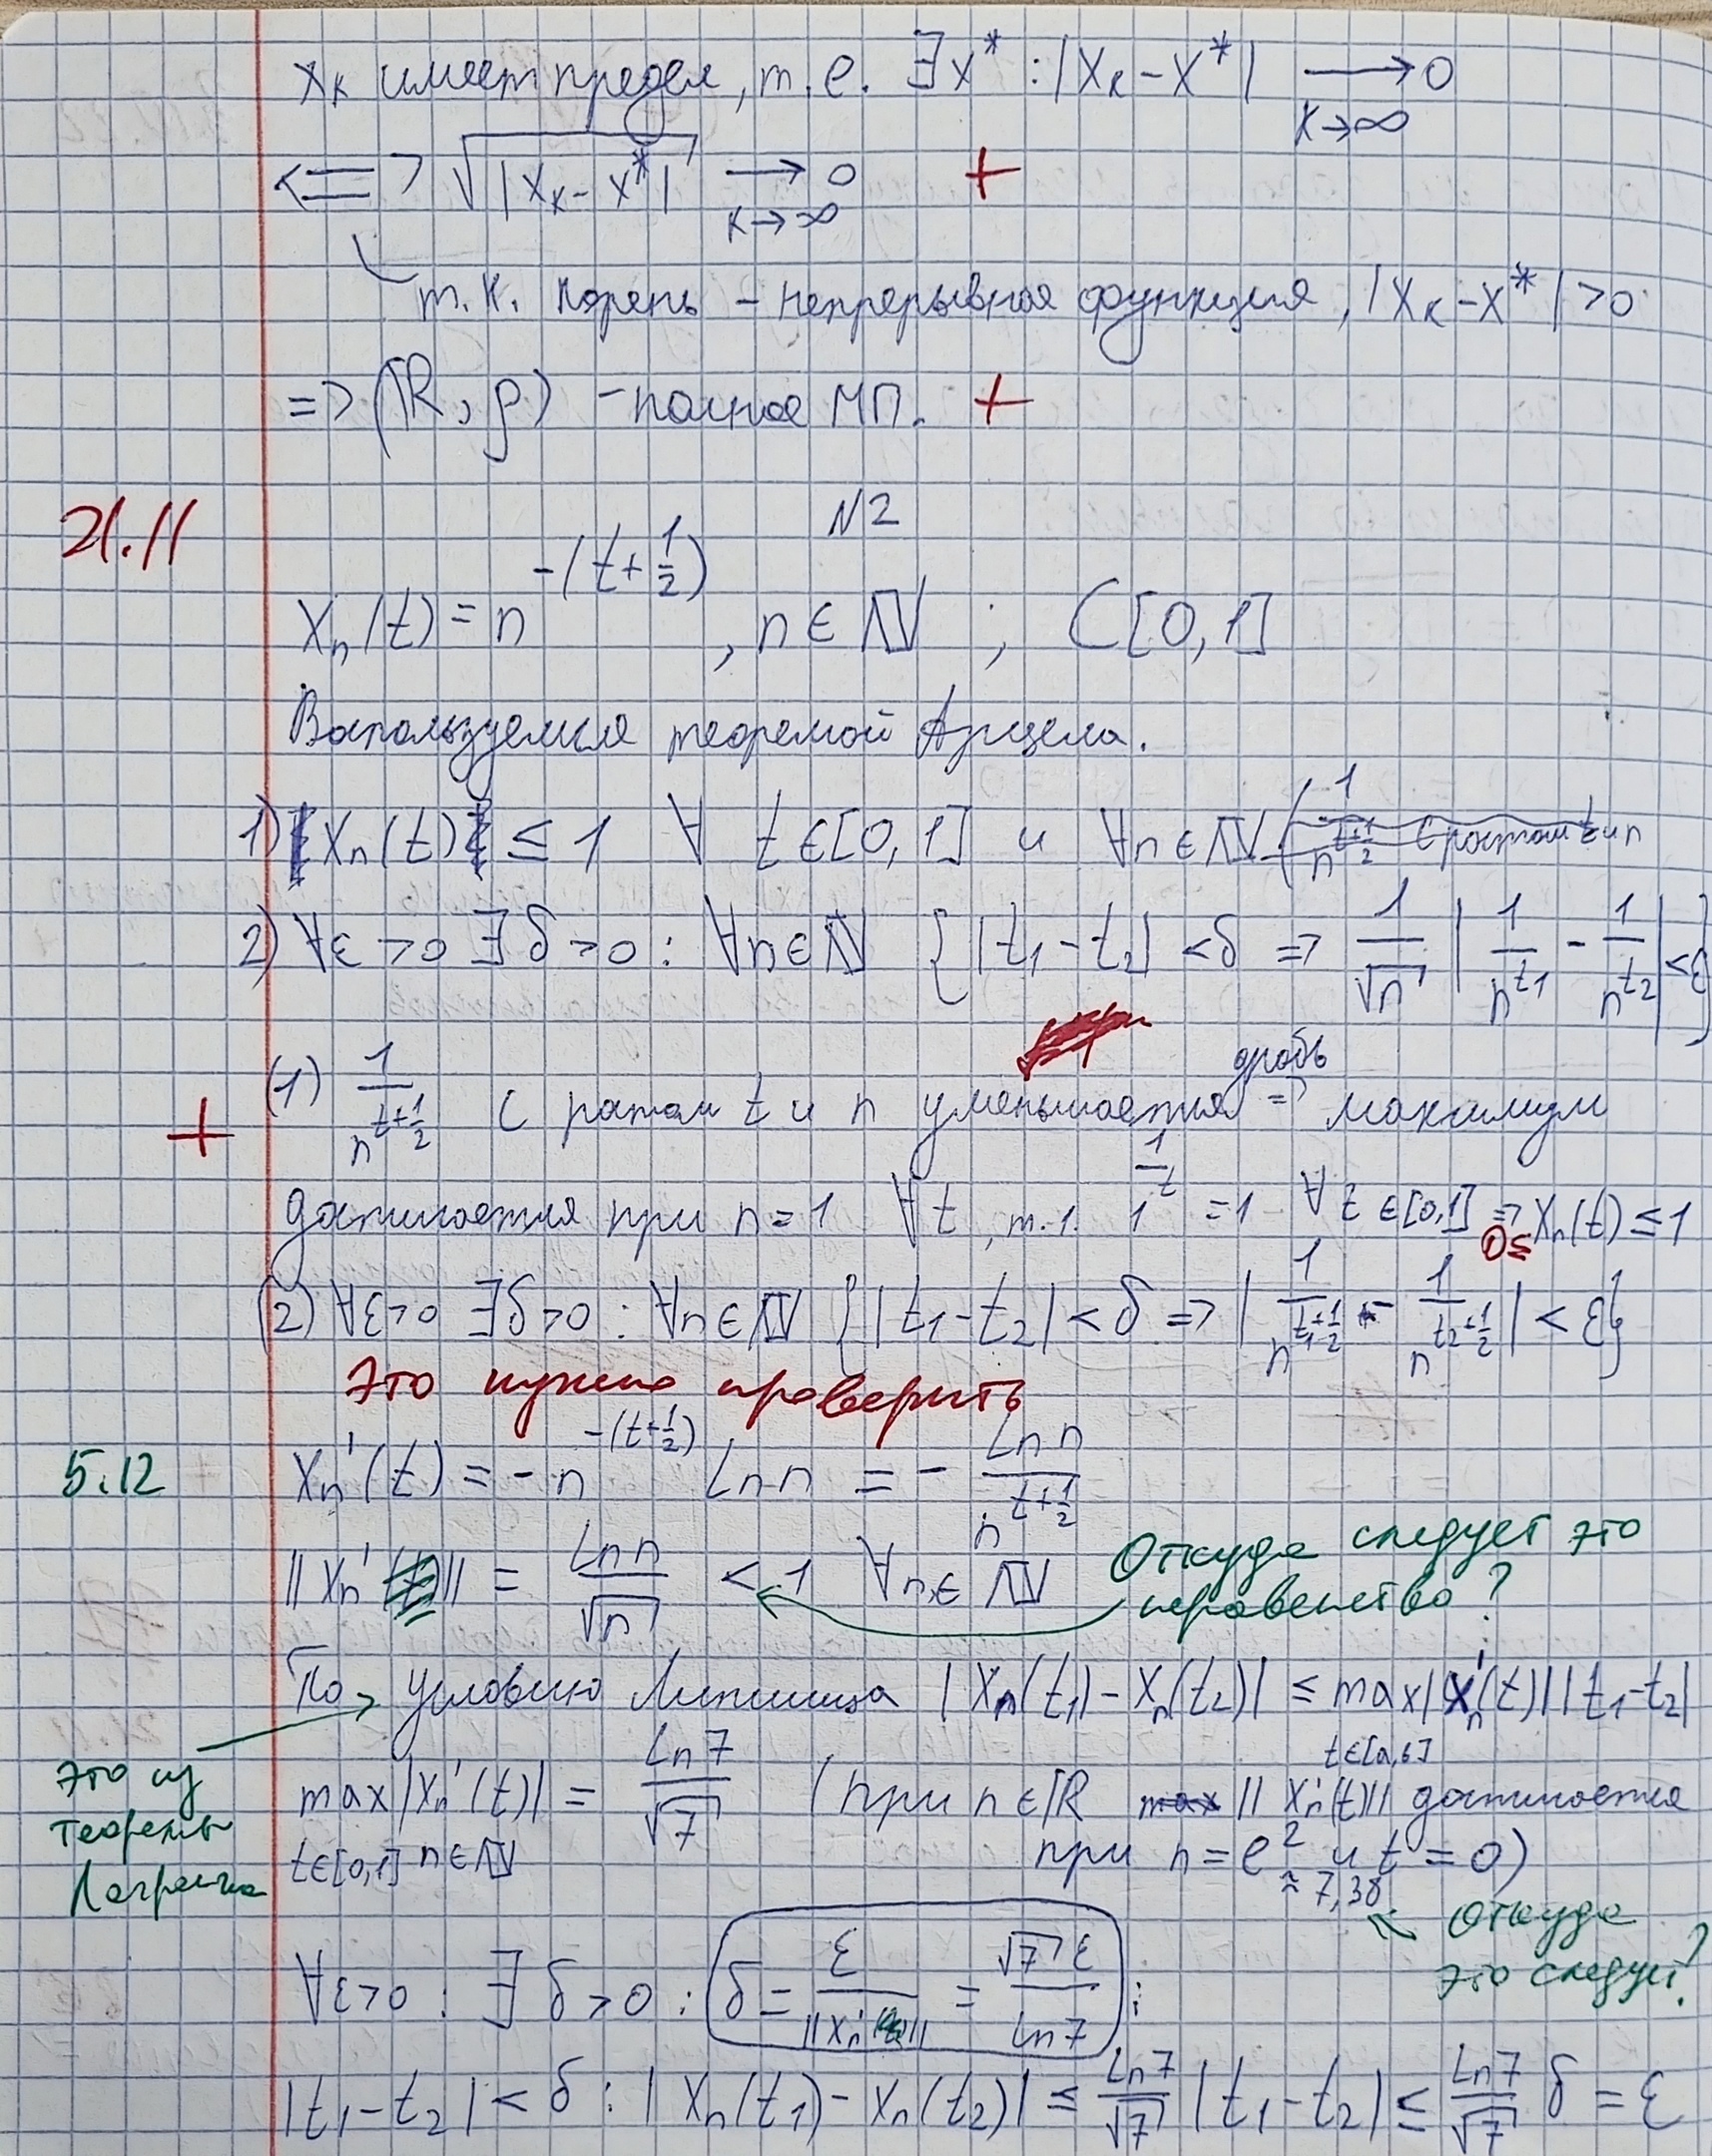 x_k имеет предел, т.е. ∃x* : |x_k - x*| → 0
k→∞
<=> √|x_k - x*| → 0 +
k→∞
т.к. корень - непрерывная функция, |x_k - x*| > 0
=> (ℝ, ρ) - полное МП. +
21.11
N2
x_n(t) = n^{-(t+1/2)}, n ∈ ℕ ; C[0,1]
Воспользуемся теоремой Арцела.
1) |x_n(t)| ≤ 1 ∀ t ∈ [0,1] и ∀n ∈ ℕ (1/n^{t+1/2} с ростом t и n
2) ∀ε > 0 ∃ δ > 0 : ∀n ∈ ℕ {|t_1 - t_2| < δ => 1/√n |1/n^{t_1} - 1/n^{t_2}| < ε}
+ (1) 1/n^{t+1/2} с ростом t и n уменьшается дробь => максимум
достигается при n = 1 ∀t, т.к. 1^{1/t} = 1 ∀t ∈ [0,1] => 0 ≤ x_n(t) ≤ 1
(2) ∀ε>0 ∃δ>0 : ∀n ∈ ℕ {|t_1 - t_2| < δ => |1/n^{t_1+1/2} - 1/n^{t_2+1/2}| < ε}
Это нужно проверить
5.12
x_n'(t) = - n^{-(t+1/2)} Ln n = - Ln n / n^{t+1/2}
||x_n'|| = Ln n / √n < 1 ∀n ∈ ℕ
Откуда следует это
неравенство?
По условию Липшица |x_n(t_1) - x_n(t_2)| ≤ max|x_n'(t)| |t_1 - t_2|
t∈[a,b]
Это из
теоремы
Лагранжа
max|x_n'(t)| = Ln 7 / √7 (при n ∈ ℝ max ||x_n'(t)|| достигается
t∈[0,1] n∈ℕ
при n = e^2 и t = 0)
≈ 7,38
Откуда
это следует?
∀ε>0 : ∃ δ > 0 : δ = ε / ||x_n'|| = √7 ε / Ln 7 :
|t_1 - t_2| < δ : |x_n(t_1) - x_n(t_2)| ≤ Ln 7/√7 |t_1 - t_2| ≤ Ln 7/√7 δ = ε